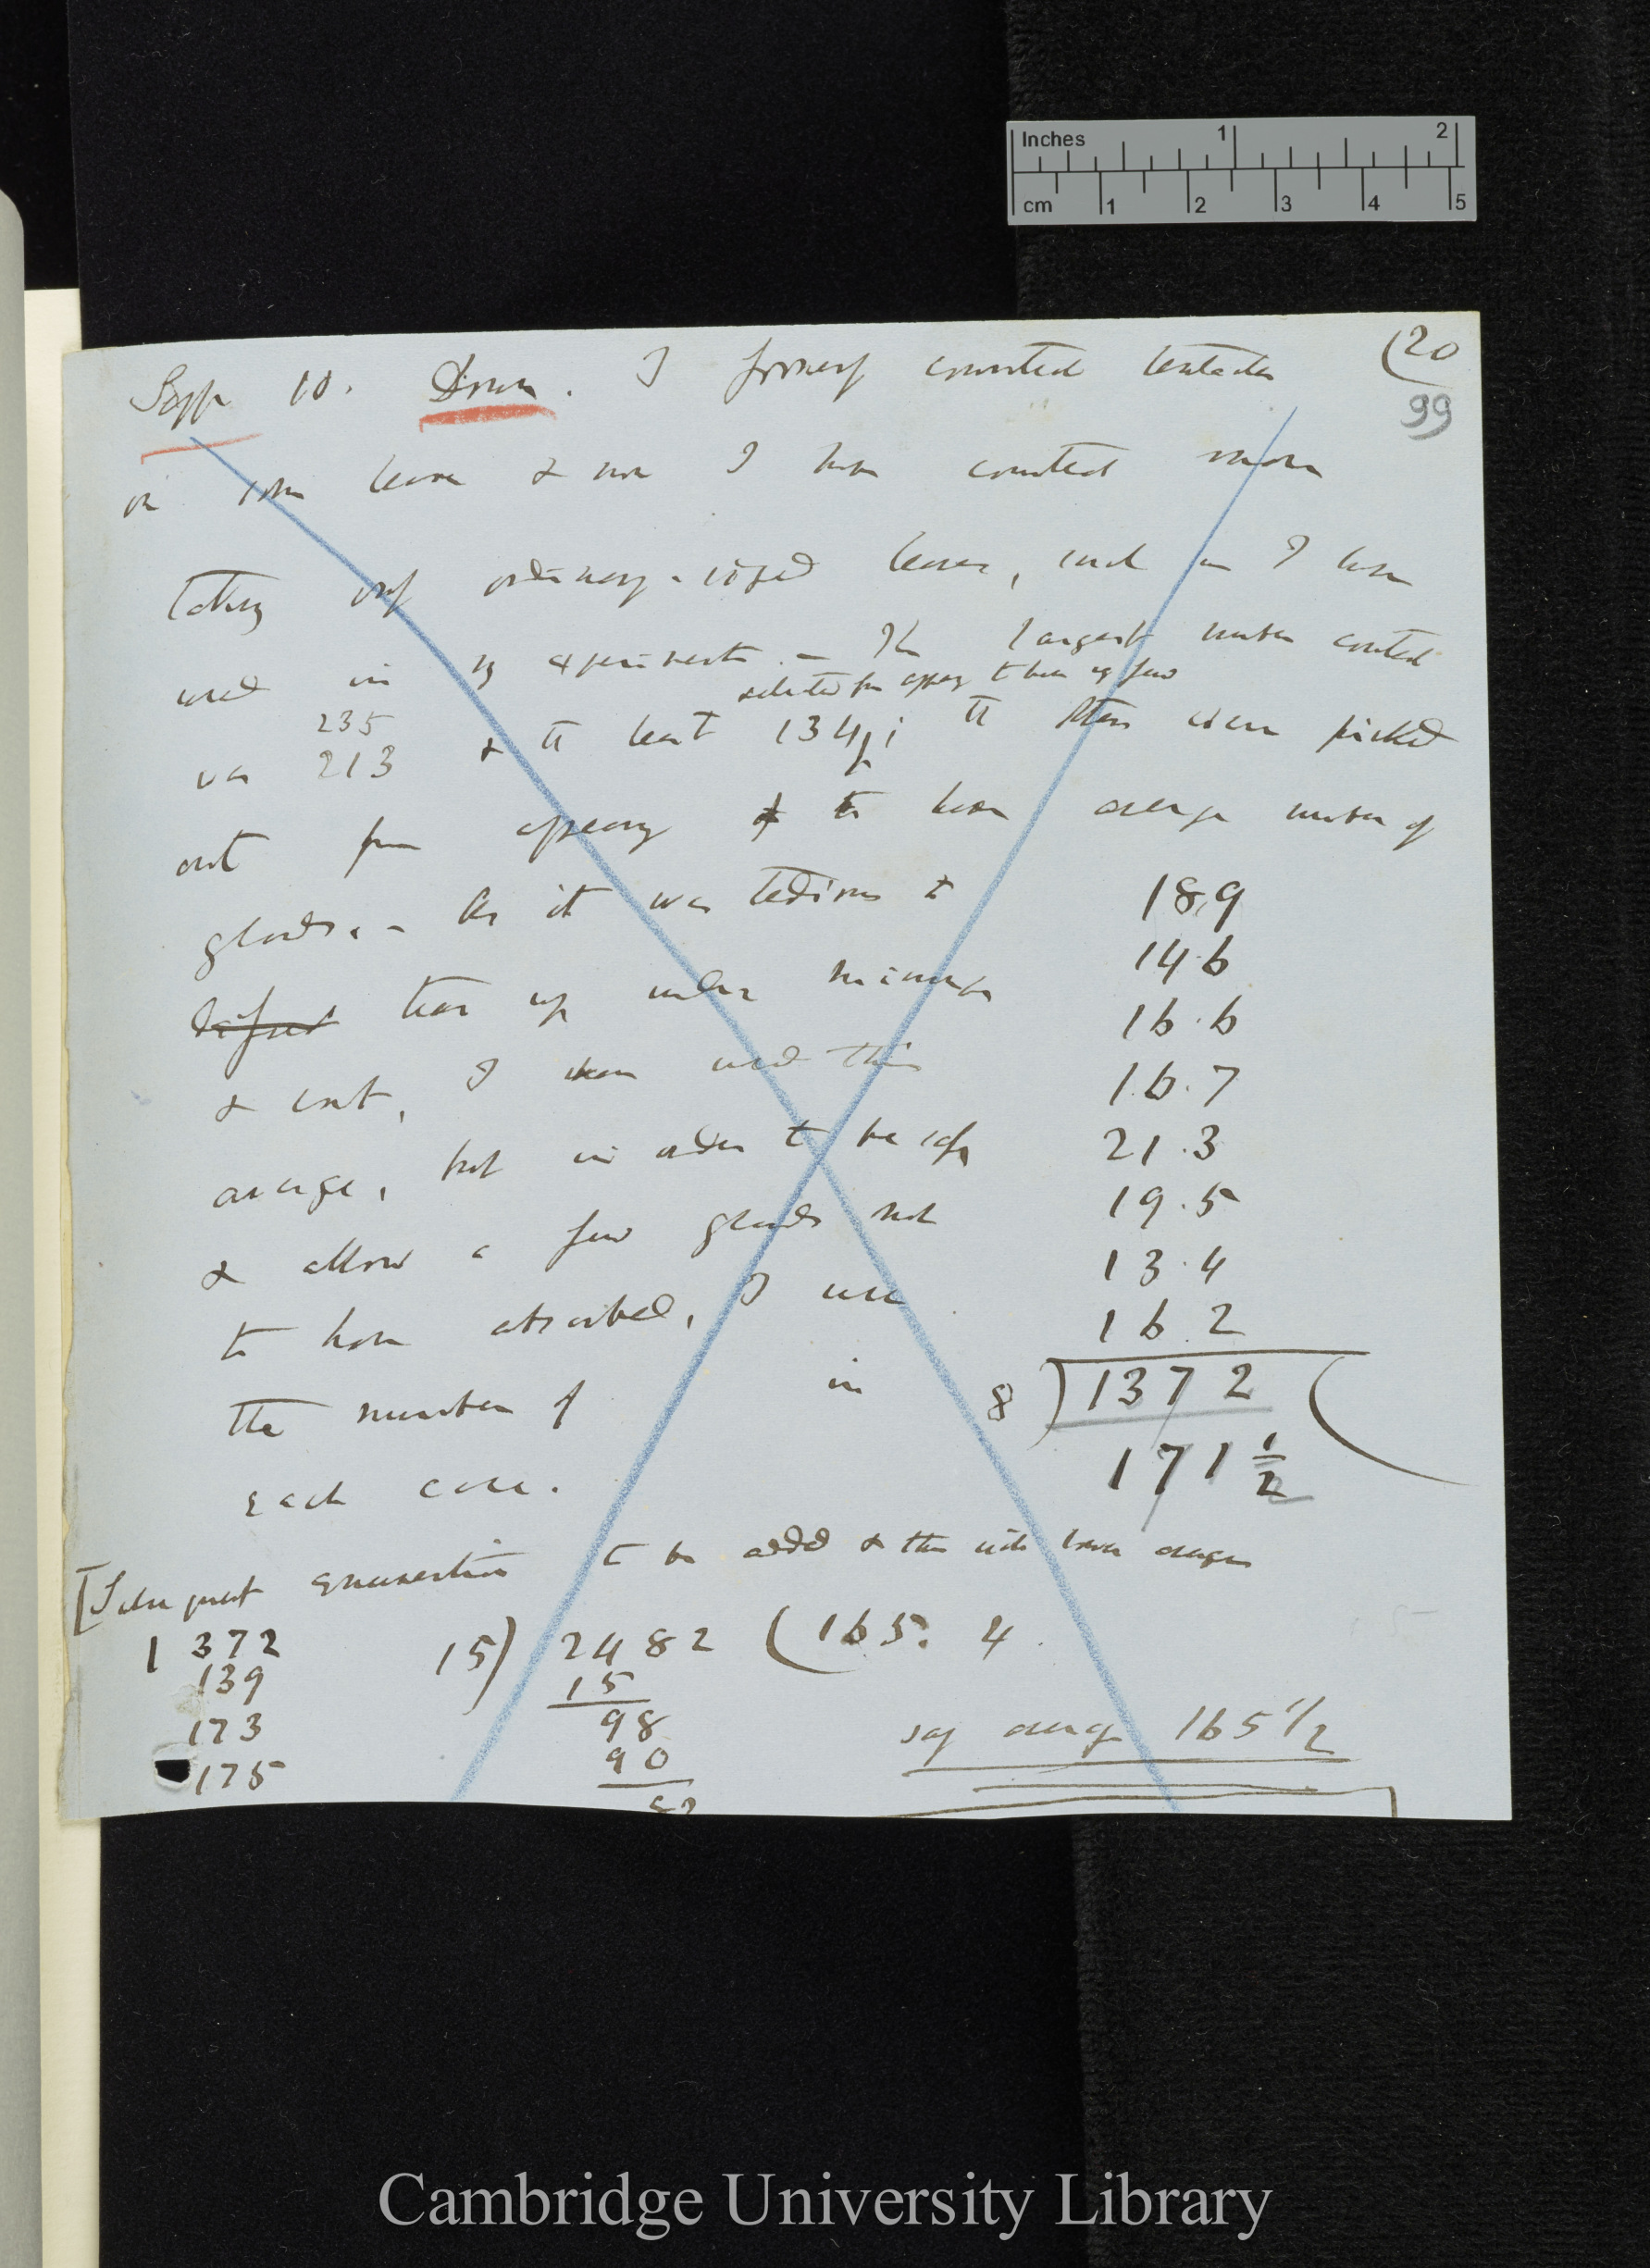 Inches 1 2
cm 1 2 3 4 5
(20
99
Sept 10. Down. I formerly counted tentacles
on some leaves & now I have counted more
taking only ordinary-sized leaves, such as I have
used in my experiments. — The largest number counted
selected from appearing to have very few
235
was 213 & the least 134; the others were picked
out from appearing to have average number of
glands. — As it was tedious to
tear up under microscope
& count, I have used this
average, but in order to be safe
& allow a few glands not
to have absorbed, I use
the number of in
each case.
189
146
166
167
213
195
134
162
8 ) 1372 (
171 1/2
[Subsequent enumeration to be added & this will lower average
1372
139
173
175
15) 2482 (165. 4
15
98
90
82
say average 165 1/2
Cambridge University Library